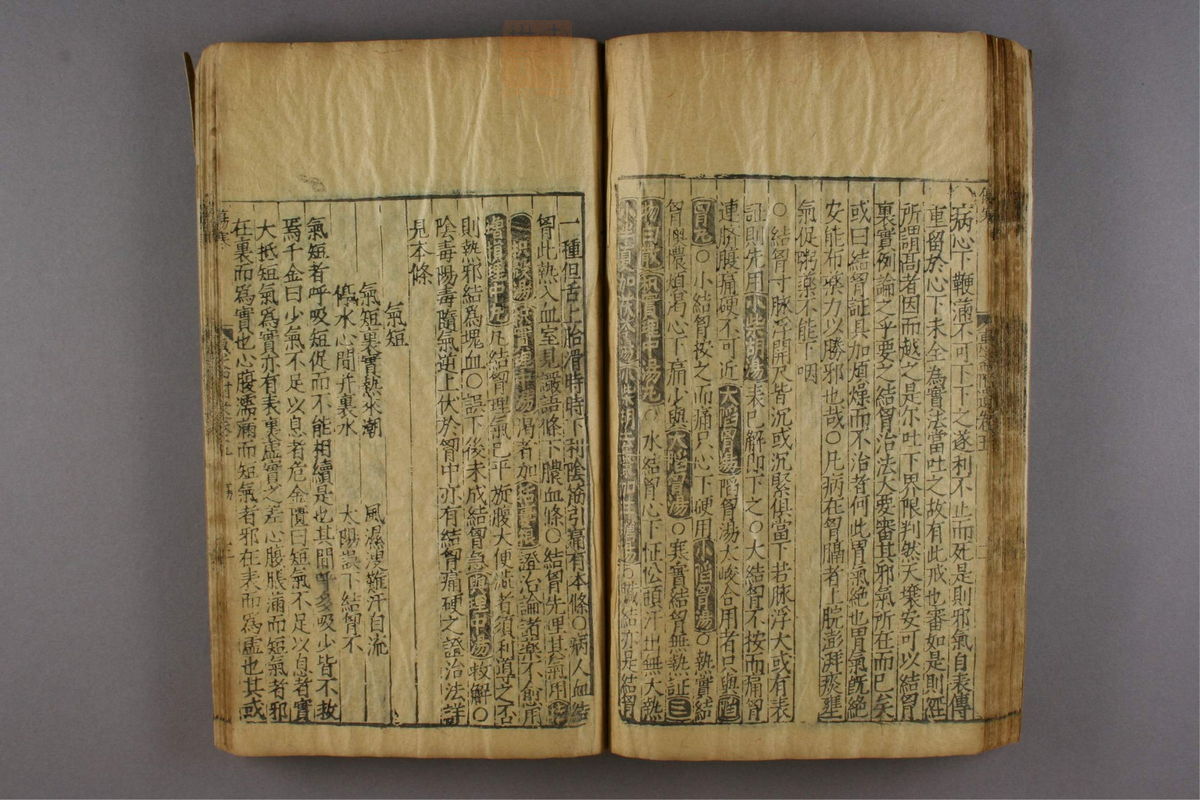 病心下鞕滿不可下下之遂利不止而死是則邪氣自表傳
重留於心下未全為實法當吐之故有此戒也審如是則經
所謂高者因而越之是尔吐下界限判然天壤安可以結胷
裏實例論之乎要之結胷治法大要審其邪氣所在而已矣
或曰結胷証具加煩燥而不治者何此胃氣絶也胃氣旣絶
安能布藥力以勝邪也哉○凡病在胷膈者上脘澎湃痰壅
氣促粥藥不能下咽
○結胷寸脉浮關尺皆沉或沉緊俱當下若脉浮大或有表
証則先用小柴胡湯表已解即下之○大結胷不按而痛胷
連臍腹痛硬不可近大陷胷湯陷胷湯太峻合用者只與陷
胷丸○小結胷按之而痛只心下硬用小陷胷湯○熱實結
胷懊憹煩渴心下痛少與大陷胷湯○寒實結胷無熱証三
物白散枳實理中湯丸○水結胷心下怔忪頭汗出無大熱
小半夏加茯苓湯小柴胡去○臟結亦是結胷
一種但舌上胎滑時時下利陰筋引痛有本條○病人血結
胷此熱入血室見譫語條下膿血條○結胷先理其氣用
枳實理中湯渴者加栝蔞根證治論諸藥不愈用
增損理中丸凡結胷理氣已平旋腹大便澁者須利導之否
則熱邪結為塊血○誤下後未成結胷急與理中湯救解○
陰毒陽毒隨氣逆上伏於胷中亦有結胷痛硬之證治法詳
見本條
氣短
氣短裏實熱來潮 風濕淒難汗自流
停水心間并裏水 太陽誤下結胷不
氣短者呼吸短促而不能相續是也其間呼多吸少皆不救
焉千金曰少氣不足以息者危金匱曰短氣不足以息者實
大抵短氣為實亦有表裏虛實之差心腹脹滿而短氣者邪
在裏而為實也心腹濡滿而短氣者邪在表而為虛也其或